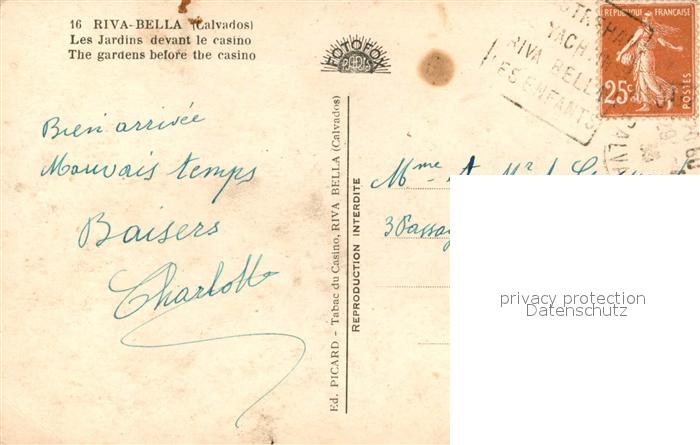 16 RIVA-BELLA (Calvados)
Les Jardins devant le casino
The gardens before the casino
FOTOFOX
PARIS
YACH
RIVA BELL
LES ENFANTS
RÉPUBLIQUE FRANÇAISE
25c
POSTES
CALVA
Bien arrivée
Mauvais temps
Baisers
Charlotte
Ed. PICARD - Tabac du Casino, RIVA BELLA (Calvados)
REPRODUCTION INTERDITE
Mme
3 Passag
privacy protection
Datenschutz